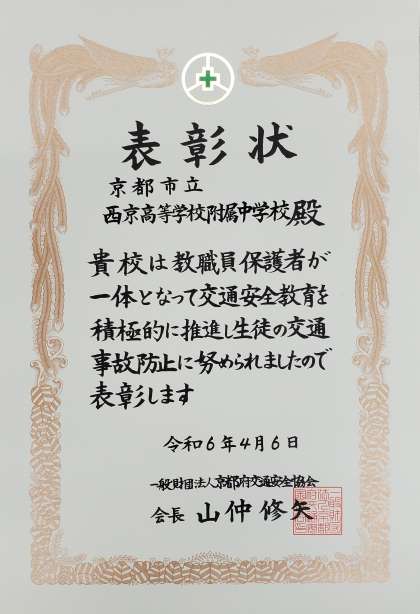 表彰状
京都市立
西京高等学校附属中学校殿
貴校は教職員保護者が
一体となって交通安全教育を
積極的に推進し生徒の交通
事故防止に努められましたので
表彰します
令和6年4月6日
一般財団法人京都府交通安全協会
会長 山仲修矢